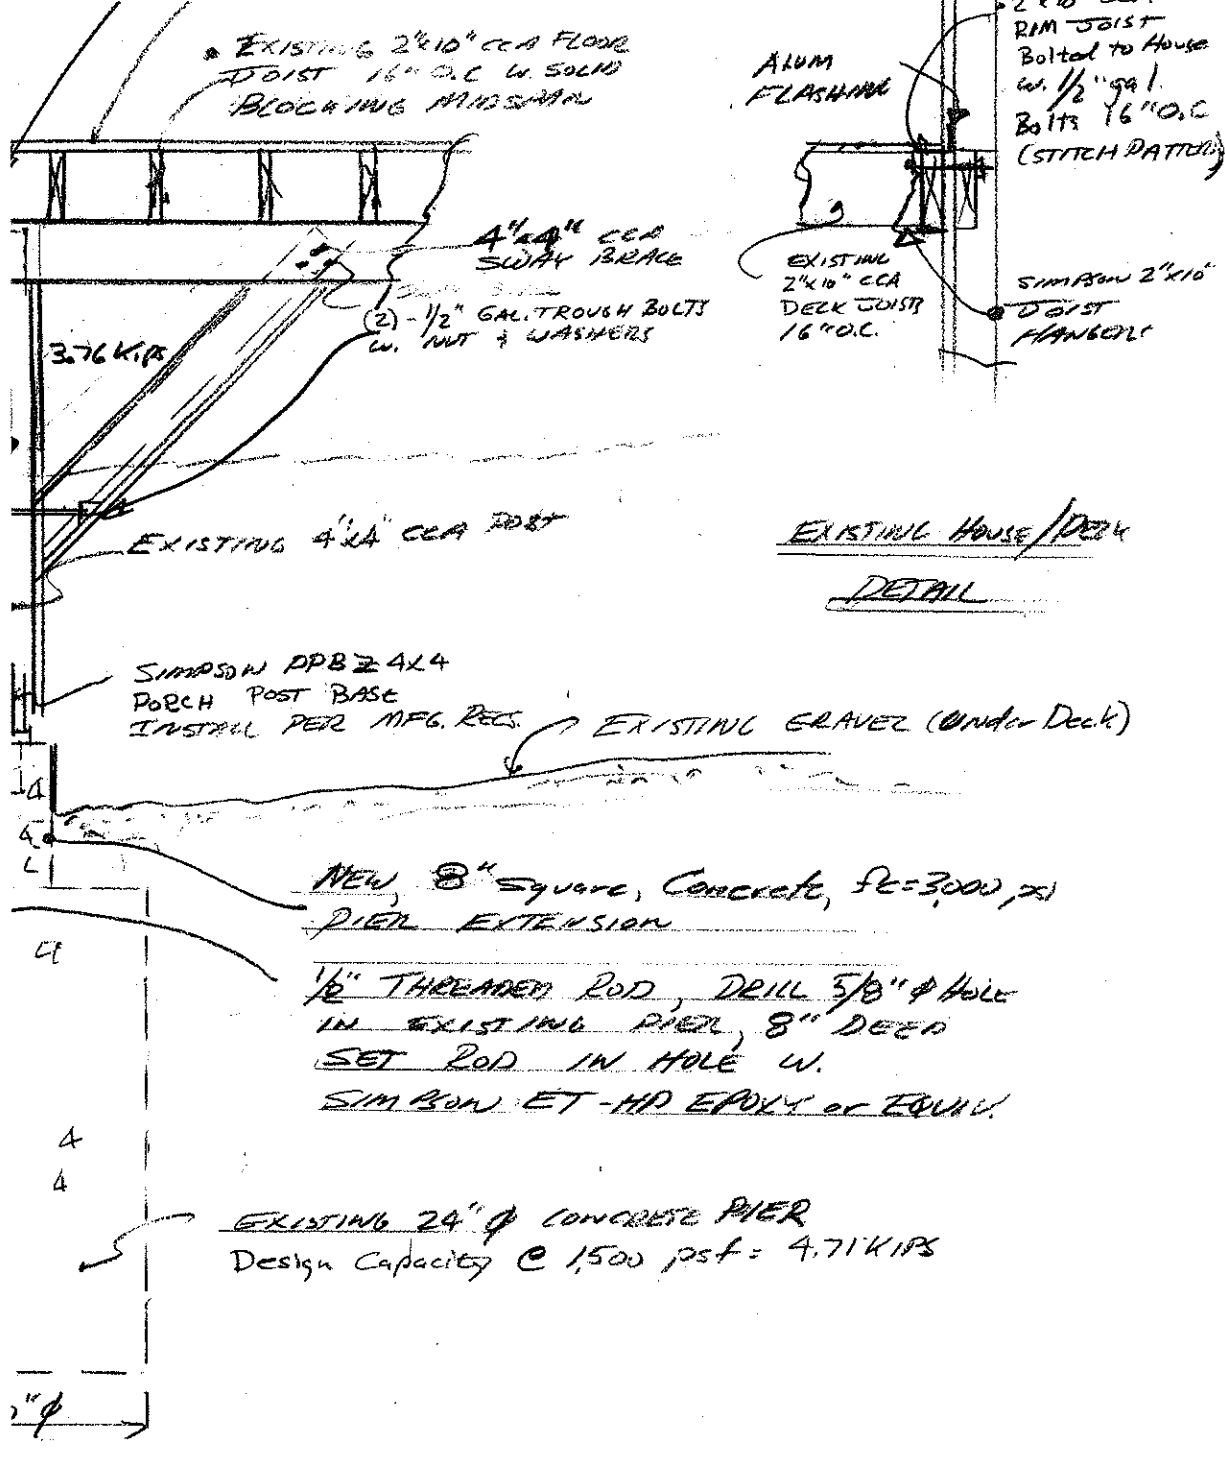 • EXISTING 2"x10" CCA FLOOR
JOIST 16" O.C W. SOLID
BLOCKING MIDSPAN
ALUM
FLASHING
• 2"x10" CCA
RIM JOIST
Bolted to House
w. 1/2" gal.
Bolts 16" O.C
(STITCH PATTERN)
4"x4" CCA
SWAY BRACE
(2) - 1/2" GAL. TROUGH BOLTS
W. NUT & WASHERS
3.76 KIPS
EXISTING
2"x10" CCA
DECK JOISTS
16" O.C.
SIMPSON 2"x10"
JOIST
HANGERS
EXISTING 4"x4" CCA POST
EXISTING HOUSE/DECK
DETAIL
SIMPSON PPBZ 4X4
PORCH POST BASE
INSTALL PER MFG. RECS.
EXISTING GRAVEL (Under Deck)
NEW, 8" Square, Concrete, fc=3,000 psi
PIER EXTENSION
1/2" THREADED ROD, DRILL 5/8" ϕ HOLE
IN EXISTING PIER, 8" DEEP
SET ROD IN HOLE W.
SIMPSON ET-HP EPOXY or EQUIV.
EXISTING 24" ϕ CONCRETE PIER
Design Capacity @ 1,500 psf = 4.71 KIPS
" ϕ